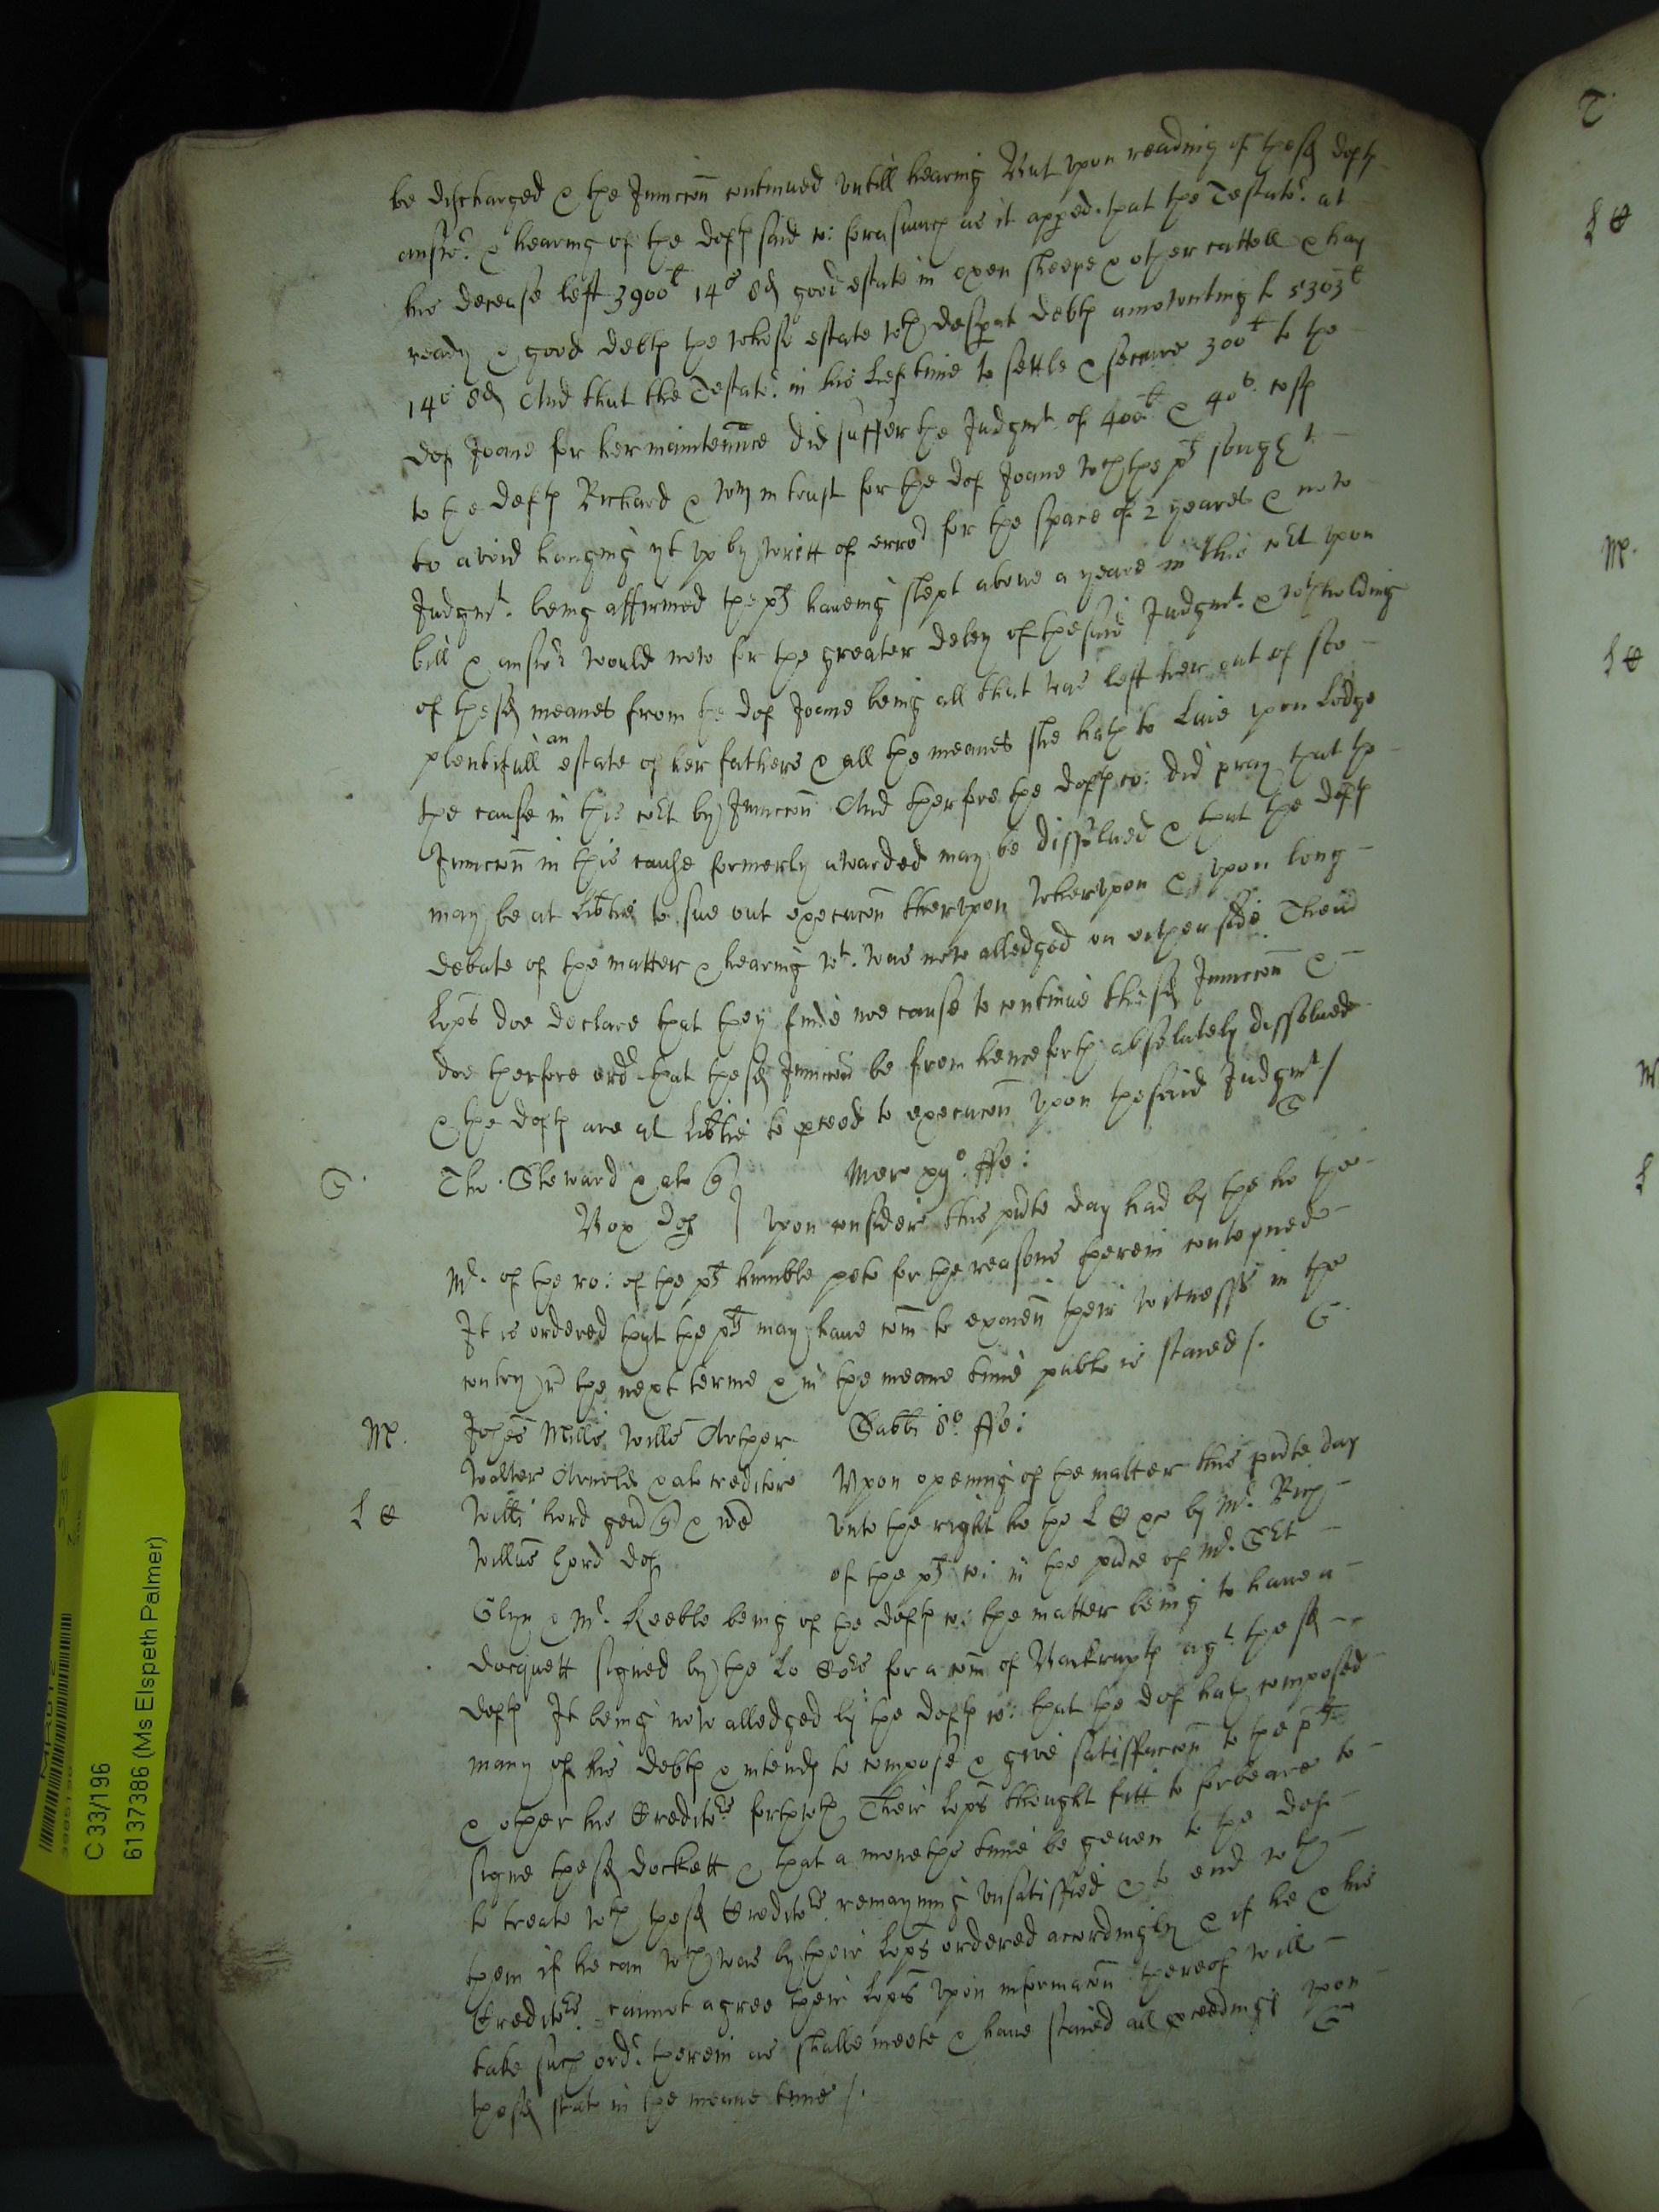 be discharged & the Iniunccon continued untill hearing But upon reading of the sd defts
answer & hearing of the defts said co: forasmuch as it apped that the Testator at
his decease left 3900li 14s 8d good estate in oxen sheepe & other cattell & hay
ready & good debts the whole estate wth desperat debts amounting to 5303li
14s 8d And that the Testator in his lief time to settle & secure 300li to the
def Joane for her maintennce did suffer the Judgmt of 400li & 40s costs
to the defts Richard & Wm in trust for the def Joane wch the pl sought
to avoid hanging yt up by writt of error for the space of 2 yeares & now
Judgmt being affirmed the pl haveing slept above a yeare in this cort upon
bill & answer would now for the greater deley of the said Judgmt & wthholding
of the sd meanes from the def Joane being all that was left her out of soe
plentifull an estate of her fathers & all the meanes she hath to live upon lodge
the cause in this cort by Iniunccon And therfore the defts co: did pray that the
Iniunccon in this cause formerly awarded may be dissolued & that the defts
may be at libtie to sue out execucon therupon wherupon & upon long
debate of the matter & hearing wt was now alledged on either side Their
Lopps doe declare that they finde noe cause to continue the sd Iniunccon &
doe therfore order that the sd Iniunccon be from henceforth absolutely dissolued
& the defts are at libtie to pceed to execucon upon the said Judgmt /
G
G. Tho. Steward & al Mer
Box def Upon consider this pnte day had by the ho the
Mr of the ro: of the pl humble peto for the reasons therein conteyned
It is ordered that the pl may have com to exaien their witnesses in the
contry r the next terme & in the meane time publc is staied /. G
M. Johes Mills Willo Archer Sabbi 8o ffe:
Walter Arnold & al creditors Upon opening of the matter this pnte day
L C Willi hord gen & unto the right ho the L C &c by Mr Rich
Willus hord def of the pl co: in the pnce of Mr Srt
Glyn & Mr Keeble being of the defts co: the matter being to have a
docquett signed by the Lo Cors for a com of Bankrupts agt the sd
defts It being now alledged by the defts co: that the def hath composed
many of his debts & intends to compose & give satisfaccon to the pl
& other his Creditors forthwth Their Lopps thought fitt to forbeare to
signe the sd dockett & that a moneths time be geven to the def
to treate wth the sd Creditors remayning unsatisfied & to end wth
them if he can wch was by their Lopps ordered accordingly & if he & his
Creditors cannot agree their Lopps upon informacon thereof will
take such order therein as shalbe meete & have staied all pceedings upon
the sd stat in the meane time /. G
C 33/196
6137386 (Ms Elspeth Palmer)